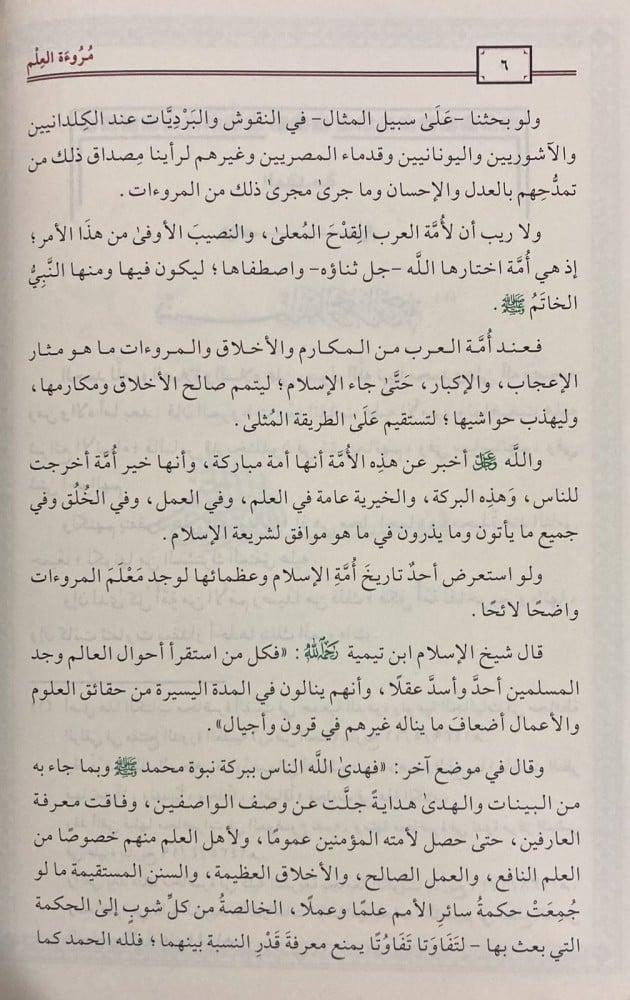 مُرُوءَة العِلْم
٦
ولو بحثنا -عَلَىٰ سبيل المثال- في النقوش والبَرْدِيَّات عند الكِلدانيين
والآشوريين واليونانيين وقدماء المصريين وغيرهم لرأينا مِصداق ذلك من
تمدُّحِهم بالعدل والإحسان وما جرىٰ مجرىٰ ذلك من المروءات .
ولا ريب أن لأمَّة العرب القِدْحَ المُعلىٰ، والنصيبَ الأوفىٰ من هذَا الأمر؛
إذ هي أُمَّة اختارها اللَّه -جل ثناؤه- واصطفاها؛ ليكون فيها ومنها النَّبِيُّ
الخاتَمُ ﷺ .
فـعـنـد أُمَّـة الـعـرب مـن الـمـكـارم والأخـلاق والـمـروءات مـا هـو مـثـار
الإعجاب، والإكبار، حَتَّىٰ جاء الإسلام؛ ليتمم صالح الأخلاق ومكارمها،
وليهذب حواشيها؛ لتستقيم عَلَىٰ الطريقة المُثلىٰ .
واللَّه ﷻ أخبر عن هذِه الأُمَّة أنها أمة مباركة، وأنها خير أُمَّة أخرجت
للناس، وَهذِه البركة، والخيرية عامة في العلم، وفي العمل، وفي الخُلُق وفي
جميع ما يأتون وما يذرون في ما هو موافق لشريعة الإسلام .
ولو استعرض أحدٌ تاريخَ أُمَّةِ الإسلام وعظمائها لوجد مَعْلَمَ المروءات
واضحًا لائحًا .
قال شيخ الإسلام ابن تيمية رَحِمَهُ اللَّهُ : «فكل من استقرأ أحوال العالم وجد
المسلمين أحدَّ وأسدَّ عقلًا، وأنهم ينالون في المدة اليسيرة من حقائق العلوم
والأعمال أضعافَ ما يناله غيرهم في قرون وأجيال» .
وقال في موضع آخر : «فهدىٰ اللَّه الناس ببركة نبوة محمد ﷺ وبما جاء به
من البينات والـهدىٰ هدايةً جلَّت عن وصف الواصفين، وفاقت معرفة
العارفين، حتىٰ حصل لأمته المؤمنين عمومًا، ولأهل العلم منهم خصوصًا من
العلم النافع، والعمل الصالح، والأخلاق العظيمة، والسنن المستقيمة ما لو
جُمِعَتْ حكمةُ سائرِ الأمم علمًا وعملًا، الخالصةُ من كلِّ شوبٍ إلىٰ الحكمة
التي بعث بها - لتَفَاوَتا تَفَاوُتًا يمنع معرفةَ قَدْرِ النسبة بينهما؛ فلله الحمد كما